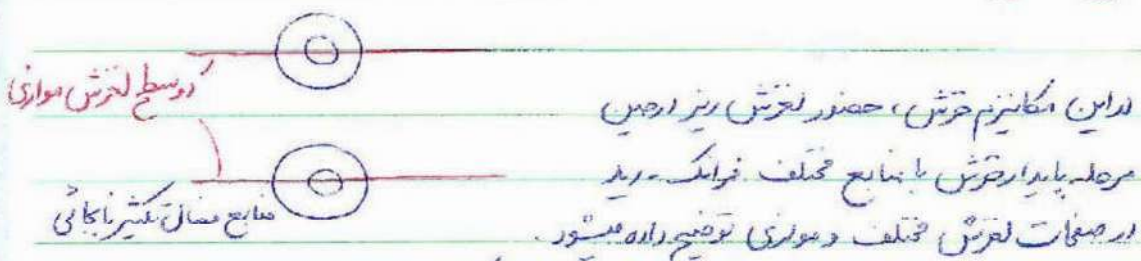 دو سطح لغزش موازی
منابع فعال تکثیر نابجائی
در این مکانیزم خزش، حضور لغزش ریز در حین
مرحله پایدار خزش با منابع مختلف فرانک - رید
در صفحات لغزش مختلف و موازی توضیح داده میشود.